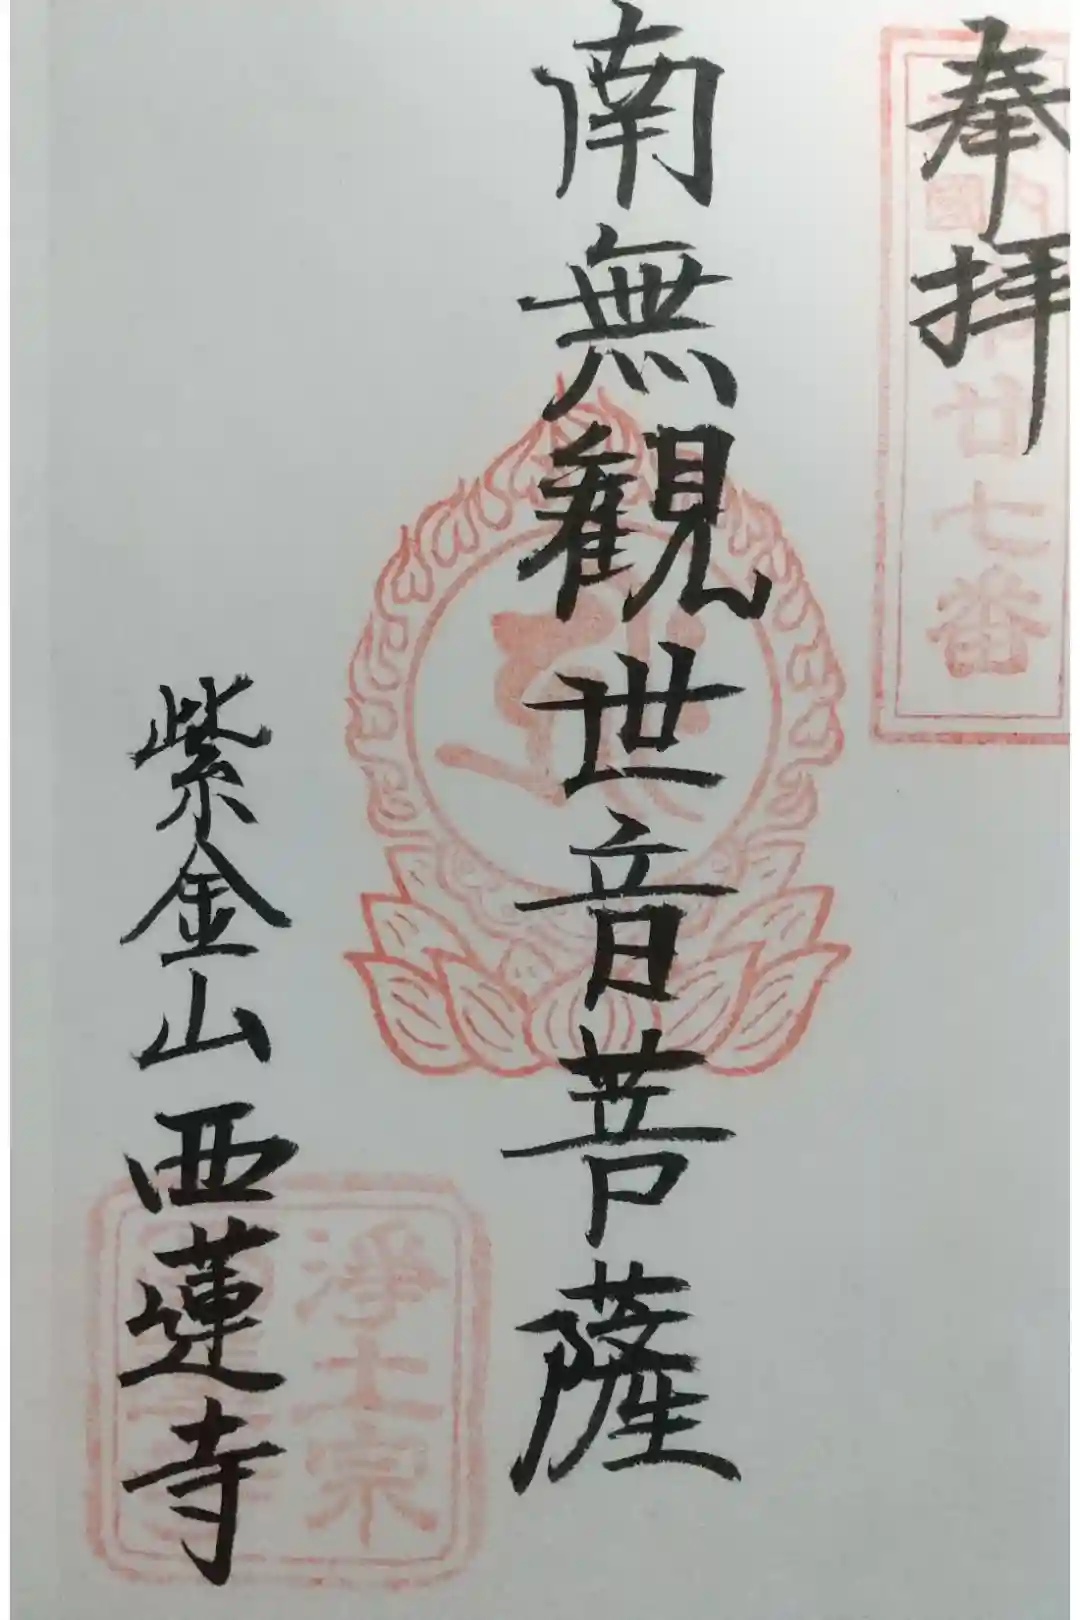 奉拝
廿七番
南無觀世音菩薩
紫金山 西蓮寺
淨土宗